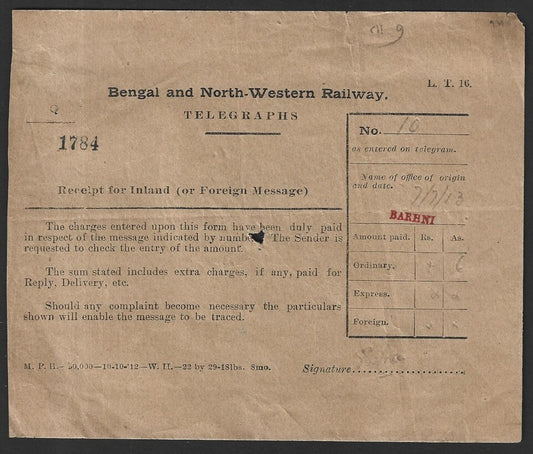 L. T. 16.
Bengal and North-Western Railway.
TELEGRAPHS
1784
Receipt for Inland (or Foreign Message)
The charges entered upon this form have been duly paid
in respect of the message indicated by The Sender is
requested to check the entry of the amount.
The sum stated includes extra charges, if any, paid for
Reply, Delivery, etc.
Should any complaint become necessary the particulars
shown will enable the message to be traced.
M. P. B.— 50,000—10-10-'12—W. H.—22 by 29-18lbs. 8mo.
No. 10
as entered on telegram.
Name of office of origin
and date. 7/7/13
BARHNI
Amount paid. Rs. As.
Ordinary. 6
Express.
Foreign.
Signature